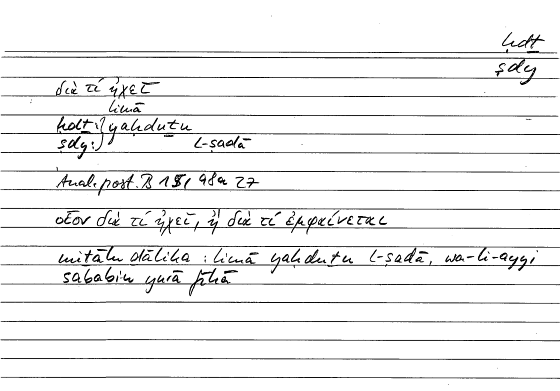 ḥdṯ
ṣdy
διὰ τί ἠχεῖ
limā
ḥdṯ:} yaḥduṯu
ṣdy:} l-ṣadā
Anal. post. B 15, 98a 27
οἷον διὰ τί ἠχεῖ, ἢ διὰ τί ἐμφαίνεται
miṯālu ḏālika : limā yaḥduṯu l-ṣadā, wa-li-ayyi
sababin yurā fīhā